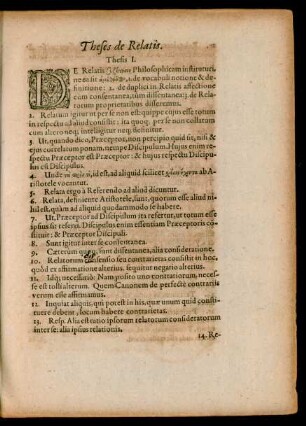 Theses de Relatis.
Thesis I.
DE Relatis Philosophicam instituturi,
ne ea sit de vocabuli notione & de-
finitione: 2. de duplici in Relatis affectione
cum consentanea, tum dissentanea: 3. de Rela-
torum proprietatibus disseremus.
2. Relatum igitur ut per se non est: quippe cujus esse totum
in respectu ad aliud consistit: ita quoq; per se non usitatum
cum altero neq; intelligitur neq; definitur.
3. Ut, quando dico, Præceptor, non percipio quid sit, nisi &
ejus correlatum ponam, nempe Discipulum. Hujus enim re-
spectu Præceptor est Præceptor: & hujus respectu Discipu-
lus est Discipulus.
4. Unde id est, ad aliquid scilicet ab A-
ristotele vocantur.
5. Relata ergo à Referendo ad aliud dicuntur.
6. Relata, definiente Aristotele, sunt, quorum esse aliud ni-
hil est, quàm ad aliquid quodammodo se habere.
7. Ut, Præceptor ad Discipulum ita refertur, ut totum esse
ipsius sit referri. Discipulus enim essentiam Præceptoris con-
stituit: & Præceptor Discipuli.
8. Sunt igitur inter se consentanea.
9. Cæterum quoq; sunt dissentanea, alia consideratione.
10. Relatorum dissensio seu contrarietas consistit in hoc,
quòd ex affirmatione alterius, sequitur negatio alterius.
11. Idq; necessariò: Nam posito uno contrariorum, neces-
se est tolli alterum. Quem Canonem de perfectè contrariis
verum esse affirmamus.
12. Inquiat aliquis, qui potest in his, quæ unum quid constitu-
ere debent, locum habere contrarietas.
13. Resp. Alia est ratio ipsorum relatorum consideratorum
inter se: alia ipsius relationis.
14. Re-